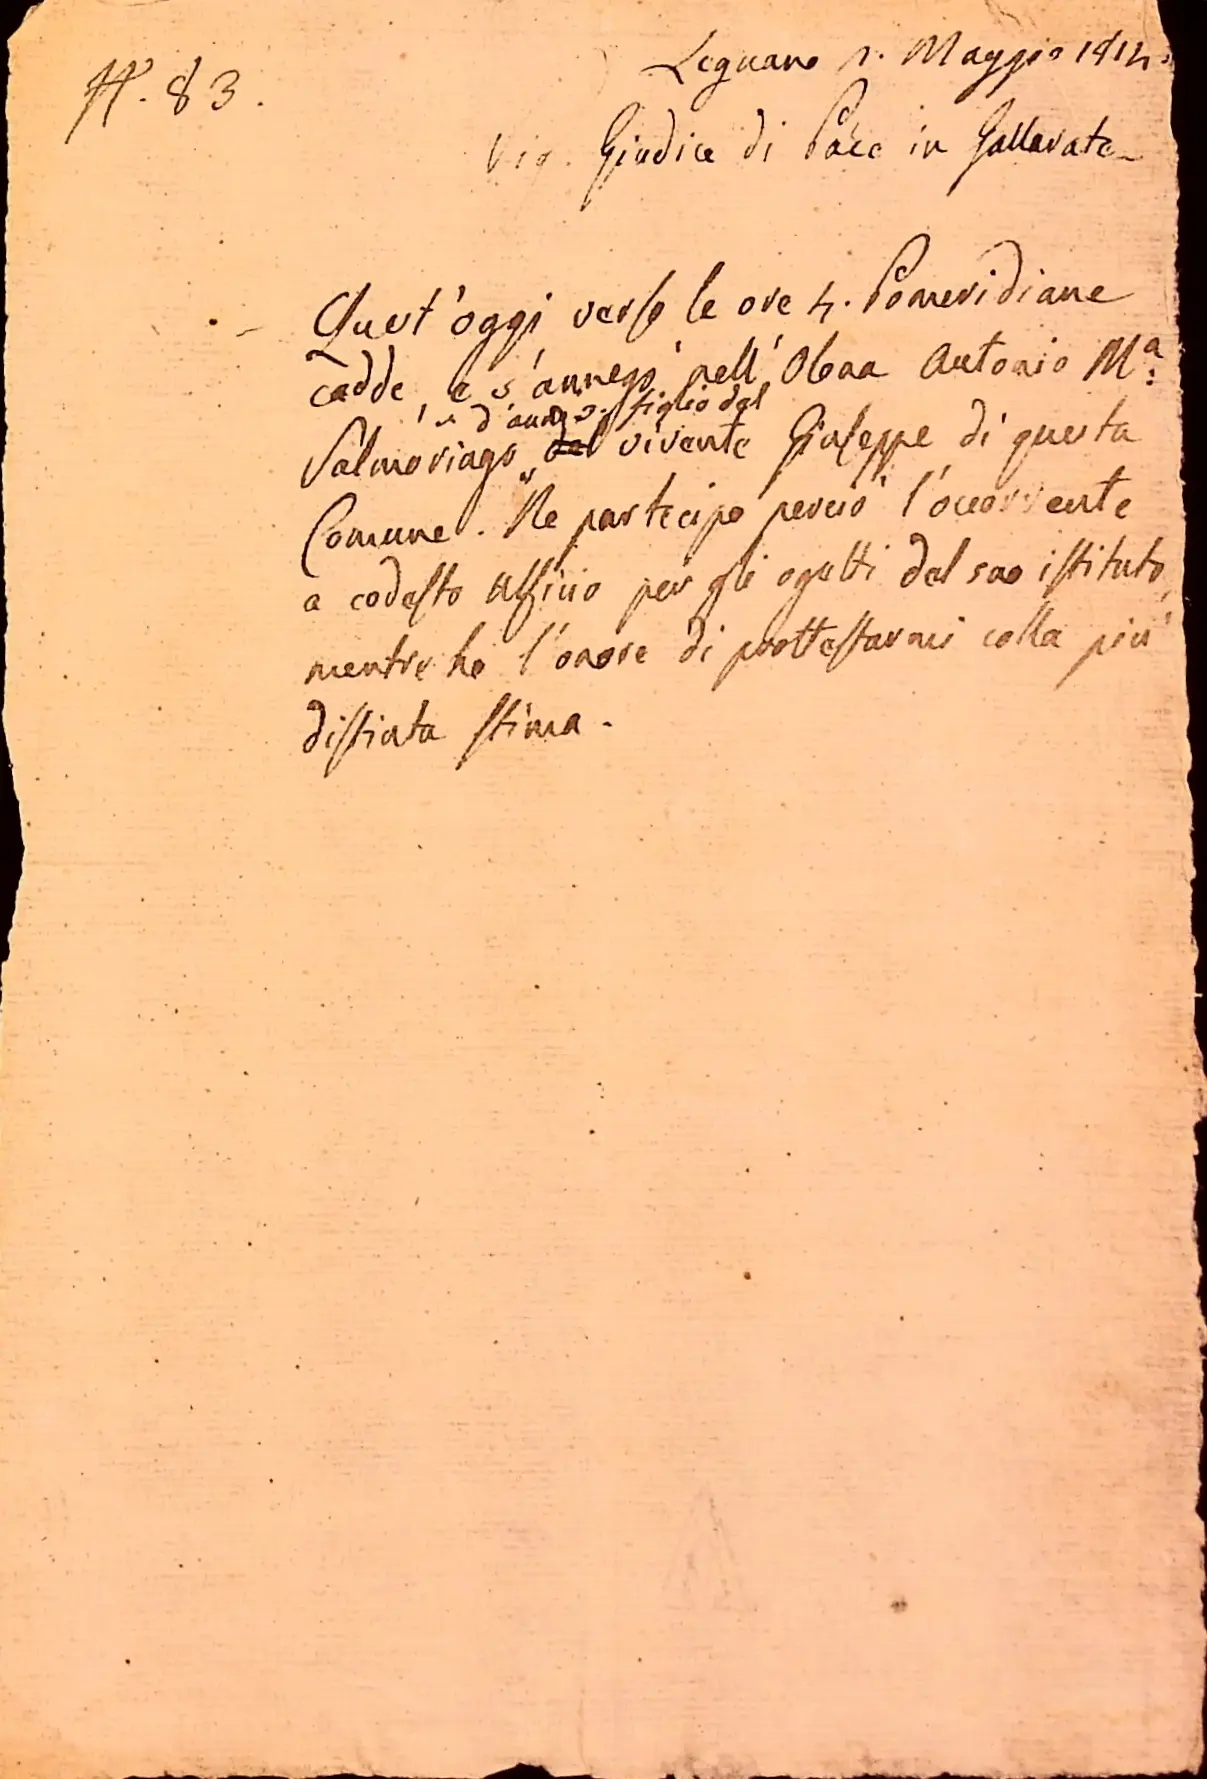 N. 83.
Legnano 1. Maggio 1814.
Sig. Giudice di Pace in Gallarate
Quest'oggi verso le ore 4. Pomeridiane
cadde, e s'annegò nell'Olona Antonio M.a
d'anni 3. figlio del
Salmoriago del vivente Giuseppe di questa
Comune. Ne partecipo perciò l'occorrente
a codesto Uffizio per gli ogetti del suo istituto,
mentre ho l'onore di prottestarmi colla più
distinta stima.